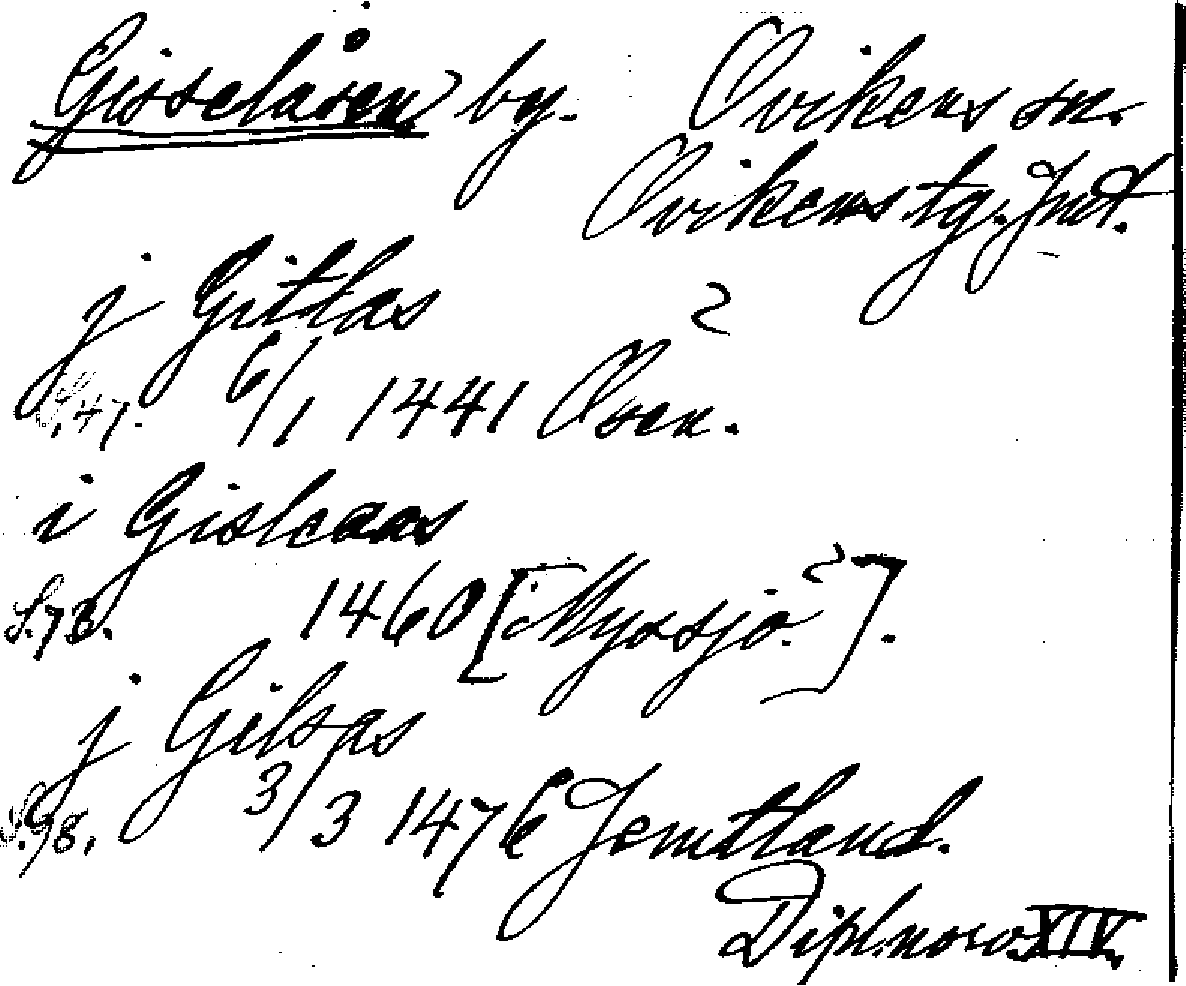 Gisselåsen by. Ovikens sn.
Ovikens tg. Jmt.
j Gitlas ?
S. 47. 6/1 1441 Osen.
i Gisleaas
S. 73. 1460 [Myssjö?].
j Gilsas
S. 98. 3/3 1476 Jemtland.
Dipl. norv. XIV.